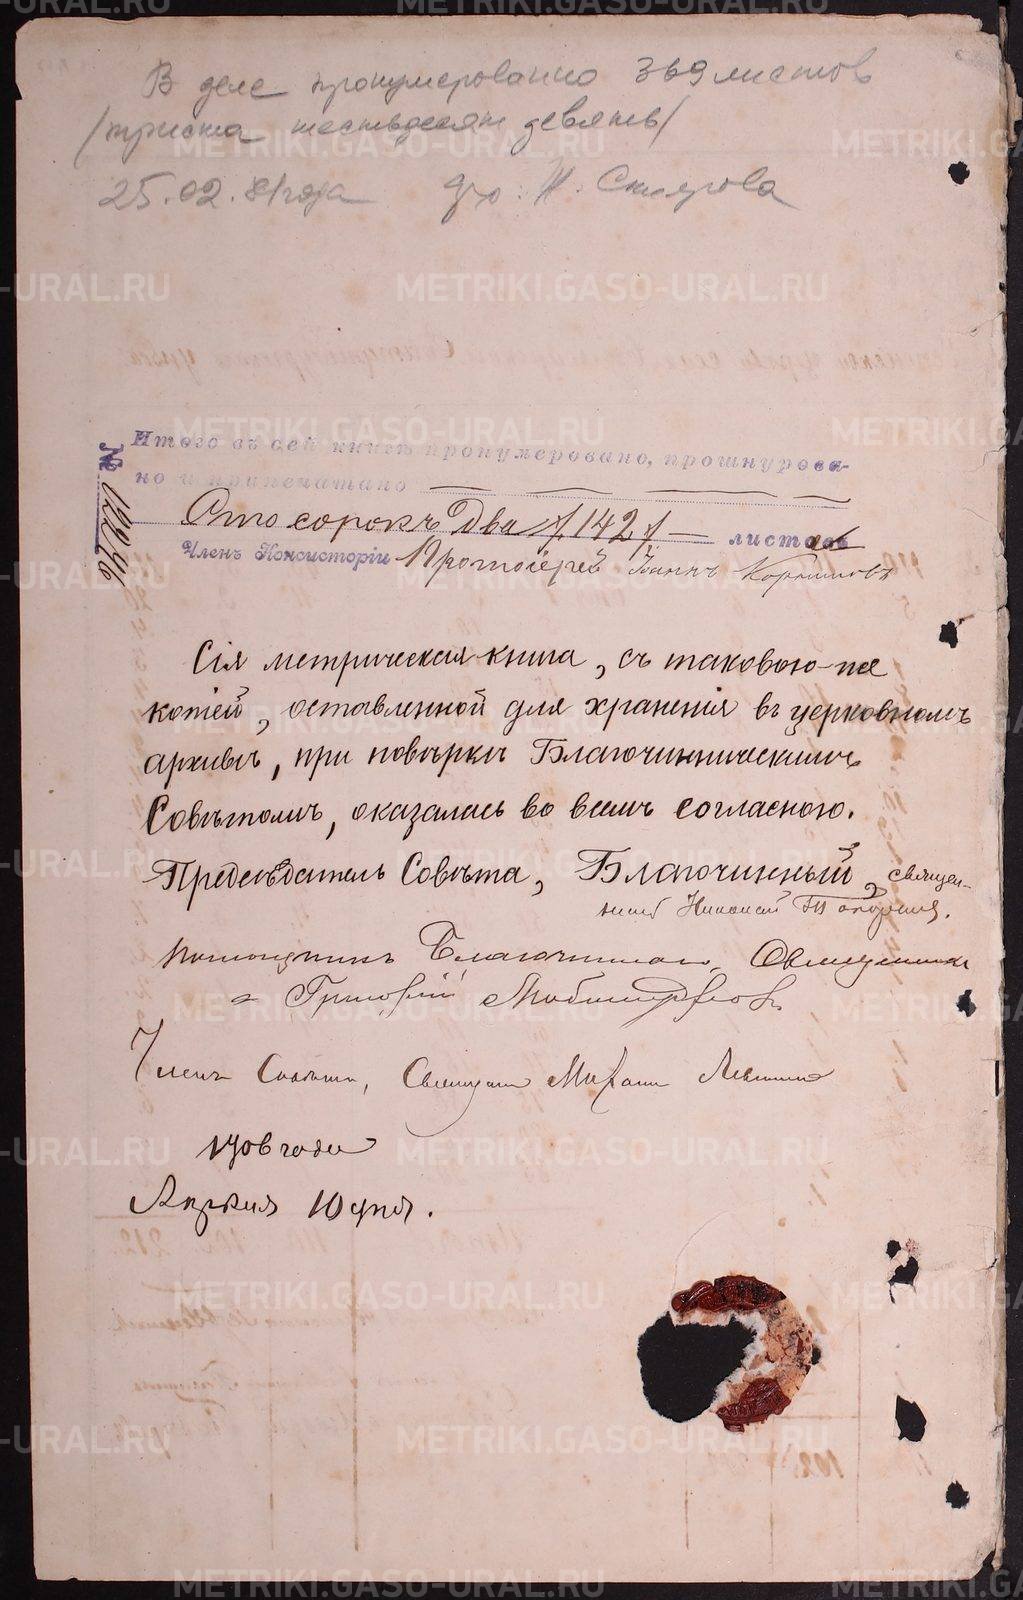 В деле пронумеровано 369 листов
/триста шестьдесят девять/
25.02.81 года
Итого въ сей книгѣ пронумеровано, прошнурова-
но и припечатано
Сто сорокъ два /142/ — листа
Членъ Консисторіи Протоіерей Іоаннъ
№ 12246
Сія метрическая книга, съ таковою-же
копіей, оставленной для храненія въ церковномъ
архивѣ, при повѣркѣ Благочинническимъ
Совѣтомъ, оказалась во всемъ согласною.
Предсѣдатель Совѣта, Благочинный, священ-
никъ Николай Топорковъ.
Помощникъ Благочиннаго, Священник
ъ Григорій
Членъ Совѣта, Священникъ Михаилъ
1906 года
Апрѣля 10 дня.
METRIKI.GASO-URAL.RU